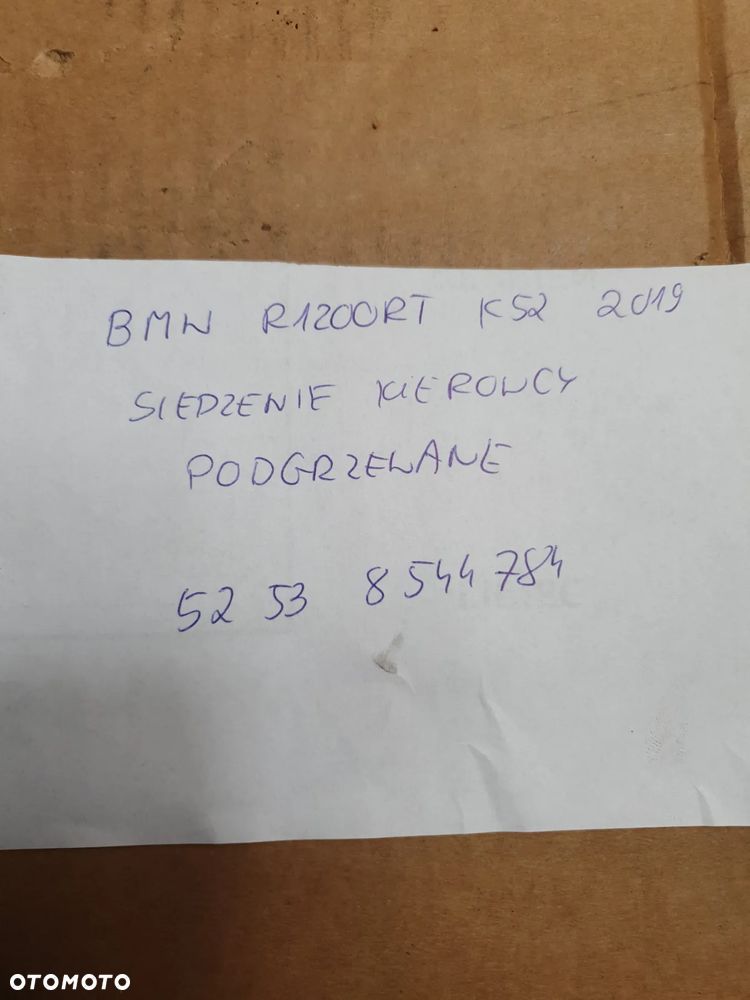 BMW R1200RT K52 2019
SIEDZENIE KIEROWCY
PODGRZEWANE
52 53 8544784
OTOMOTO